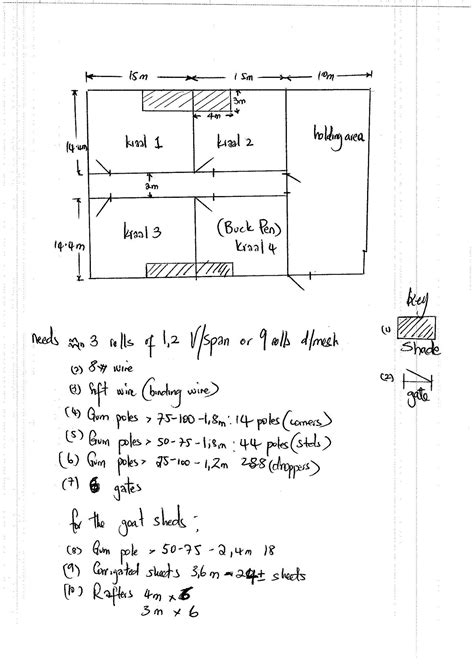 15m 15m 10m
3m
4m
14.4m
kraal 1
kraal 2
holding area
2m
14.4m
kraal 3
(Buck Pen)
kraal 4
key
(1)
Shade
(2)
gate
Needs 3 rolls of 1,2 V/span or 9 rolls d/mesh
(2) wire
(3) Soft wire (binding wire)
(4) Gum poles > 75-100-1,8m : 14 poles (corners)
(5) Gum poles > 50-75-1,8m : 44 poles (stds)
(6) Gum poles > 25-100-1,2m 288 (droppers)
(7) 6 gates
for the goat sheds ;
(8) Gum pole > 50-75-2,4m 18
(9) Corrigated sheets 3,6m = 24± sheets
(10) Rafters 4m x 6
3m x 6